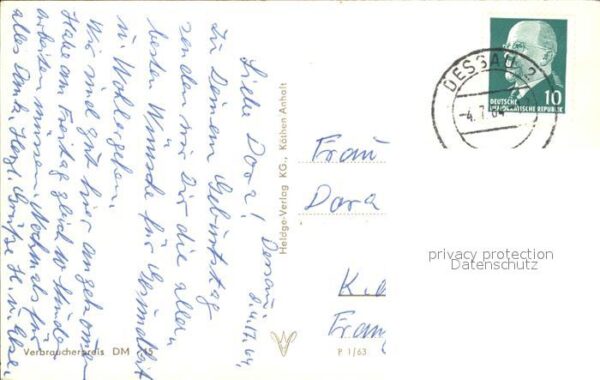 Liebe Dora!
Dessau,
Zu Deinem Geburtstag
senden wir Dir die aller-
besten Wünsche für Gesundheit
u. Wohlergehen.
Wir sind gut hier angekommen
Habe am Freitag gleich 10 Stunden
arbeiten müssen. Nochmals für
alles Dank. Herzl. Grüße H. u. Else.
Verbraucherpreis DM
Heldge-Verlag KG., Köthen-Anhalt
P 1/63
DESSAU 2
-4.7.64
10
DEUTSCHE
DEMOKRATISCHE REPUBLIK
Frau
Dora
privacy protection
Datenschutz